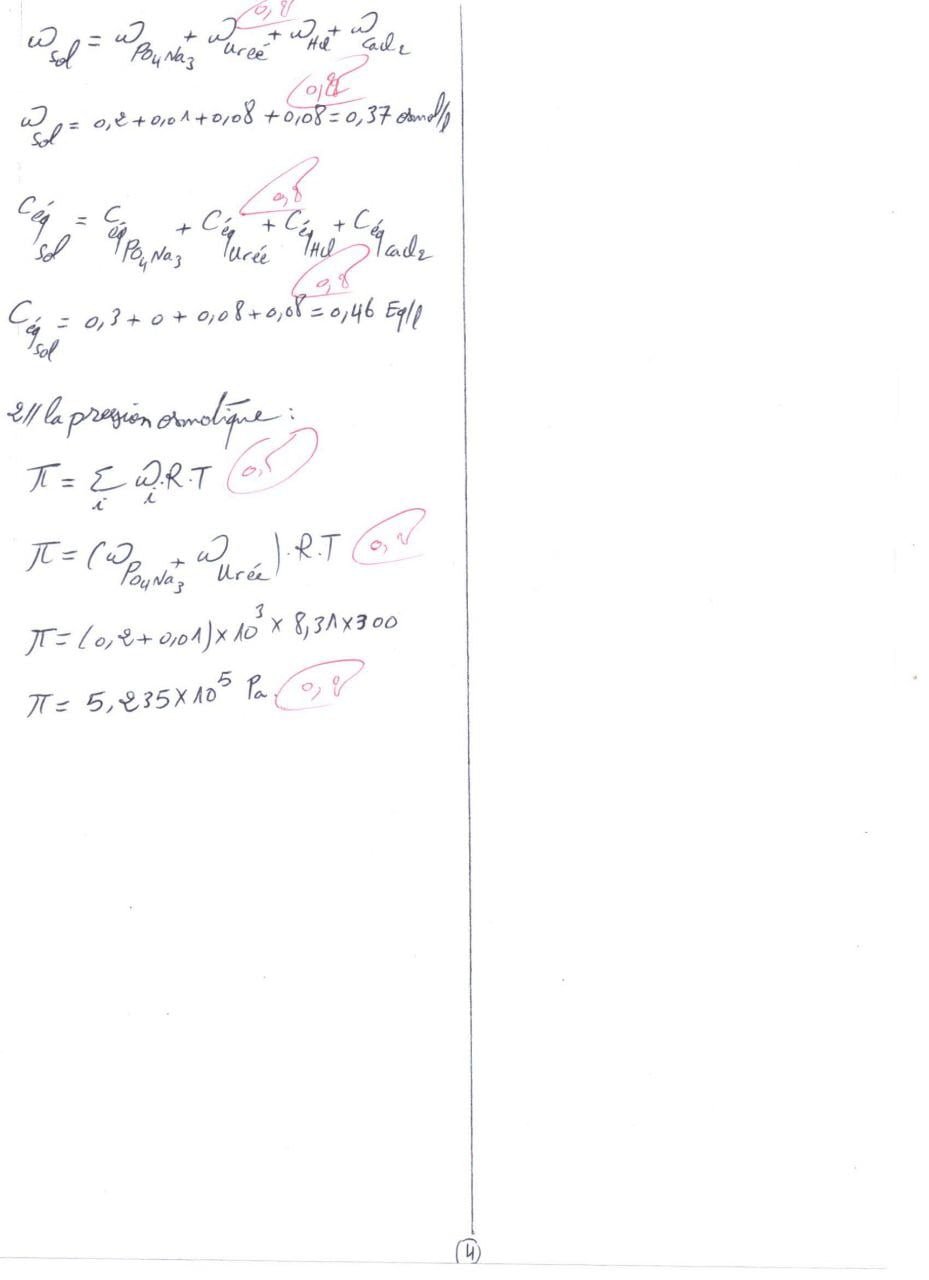 0,8
ω_sol = ω_PO4Na3 + ω_Urée + ω_Hcl + ω_Cacl2
0,8
ω_sol = 0,2 + 0,01 + 0,08 + 0,08 = 0,37 osmol/l
0,8
Céq_sol = Céq_PO4Na3 + Céq_Urée + Céq_Hcl + Céq_Cacl2
0,8
Céq_sol = 0,3 + 0 + 0,08 + 0,08 = 0,46 Eq/l
2// la pression osmotique :
π = Σ_i ω_i.R.T
π = (ω_PO4Na3 + ω_Urée).R.T
π = (0,2 + 0,01) × 10^3 × 8,31 × 300
π = 5,235 × 10^5 Pa.
4